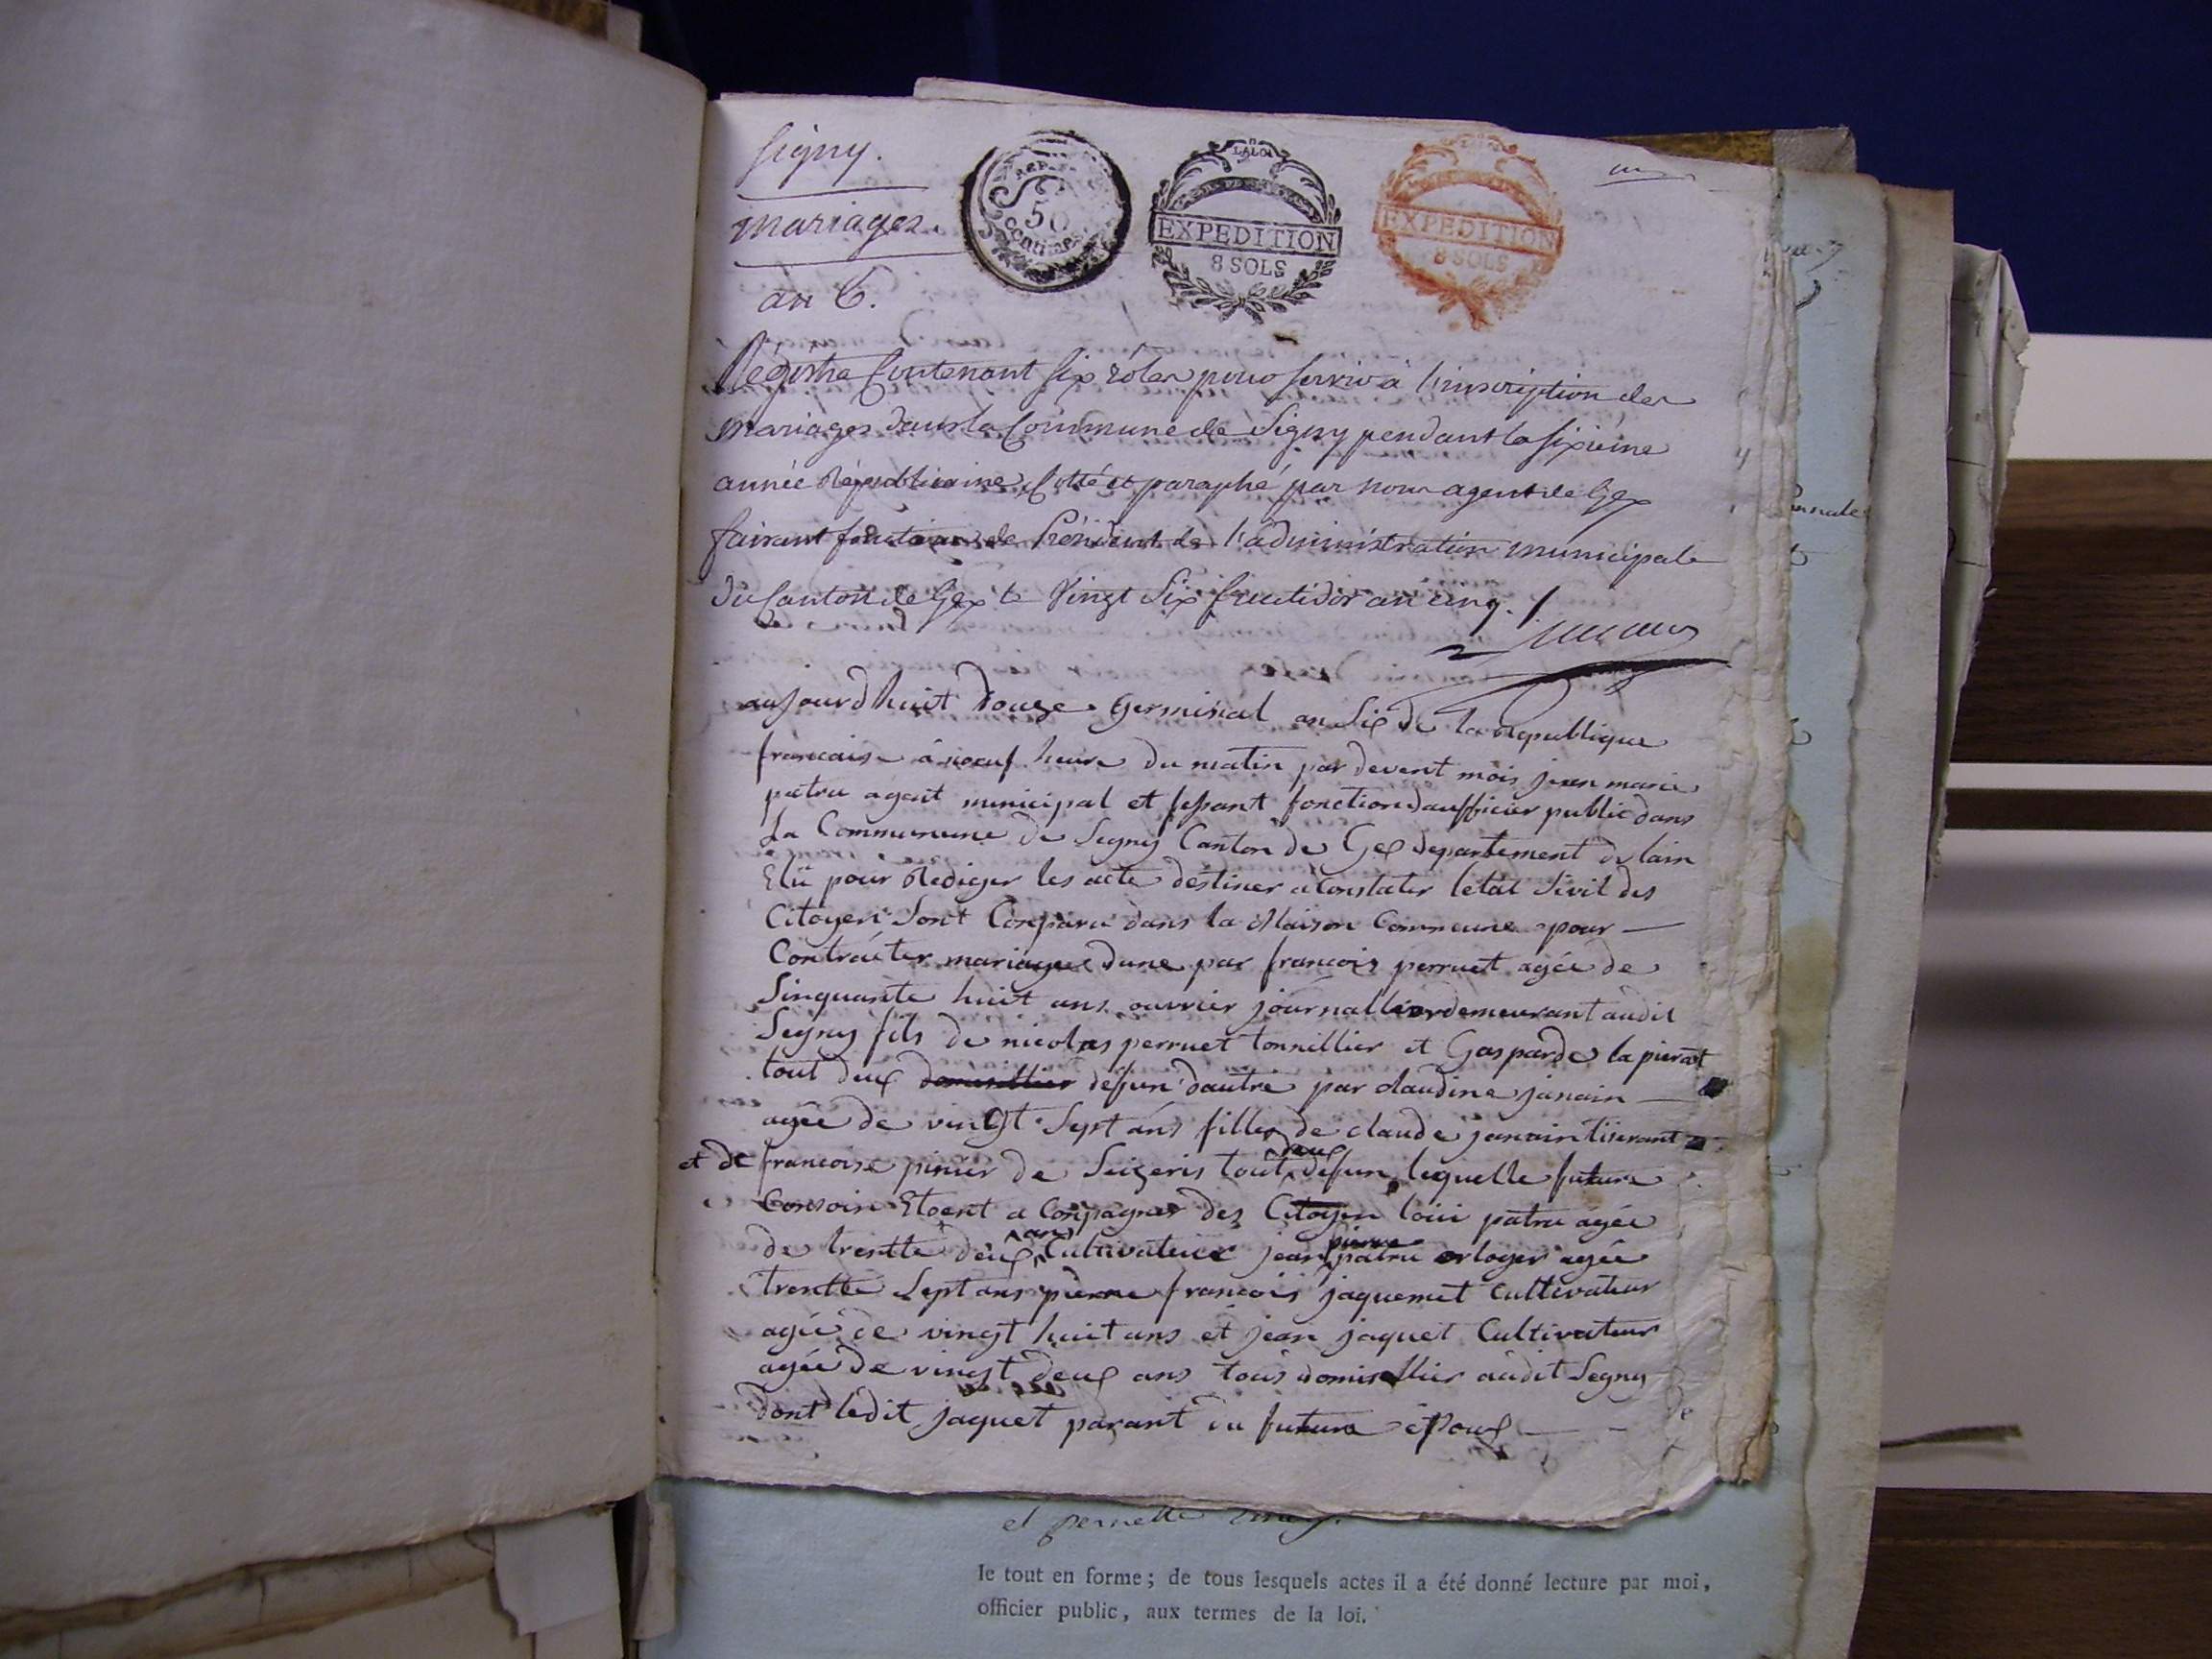 Segny.
mariages.
an 6.
REP. F.
50
centimes
LA LOI
EXPEDITION
8 SOLS
EXPEDITION
8 SOLS
Régistre Contenant six rôles pour servir à l'inscription des
mariages dans la Commune de Segny pendant la sixième
année Républicaine, Cotté et paraphé par nous agent de Gex
faisant fonctions de Président de l'administration municipale
du Canton de Gex le vingt six fructidor an cinq.
aujourdhuit douze germinal an six de la Republique
francaise à noeuf heure du matin par devent mois jean marie
patru agent municipal et fessant fonction daufficier public dans
La Communune de Segny Canton de Gex departement de lain
Elû pour Rediger les acte destiner a Constater letat sivil des
Citoyen Sont Comparu dans la Maison Commune pour
Contracter mariage dune par francois perruet agée de
Sinquante huit ans ouvrier journallier demeurant audit
Segny fils de nicolas perruet tonnillier et Gasparde la pierat
tout deux domisellier deffun dautre par claudine janain
agée de vingt Sept ans filles de claude janain tiserant
et de francoise pinier de Seizeris tout deux defun lequelle future
Consoin Etoent a Conpagner des Citoyen loui patru agée
de trentte deux ans Cultivateur jean pierre patru orloger agée
trentte Sept ans pierre francois jaquemet Cultivateur
agée de vingt huit ans et jean jaquet Cultivateur
agée de vingt deux ans tous domisellier audit Segny
dont ledit jaquet parant du future epoux
et pernette
le tout en forme ; de tous lesquels actes il a été donné lecture par moi,
officier public, aux termes de la loi.